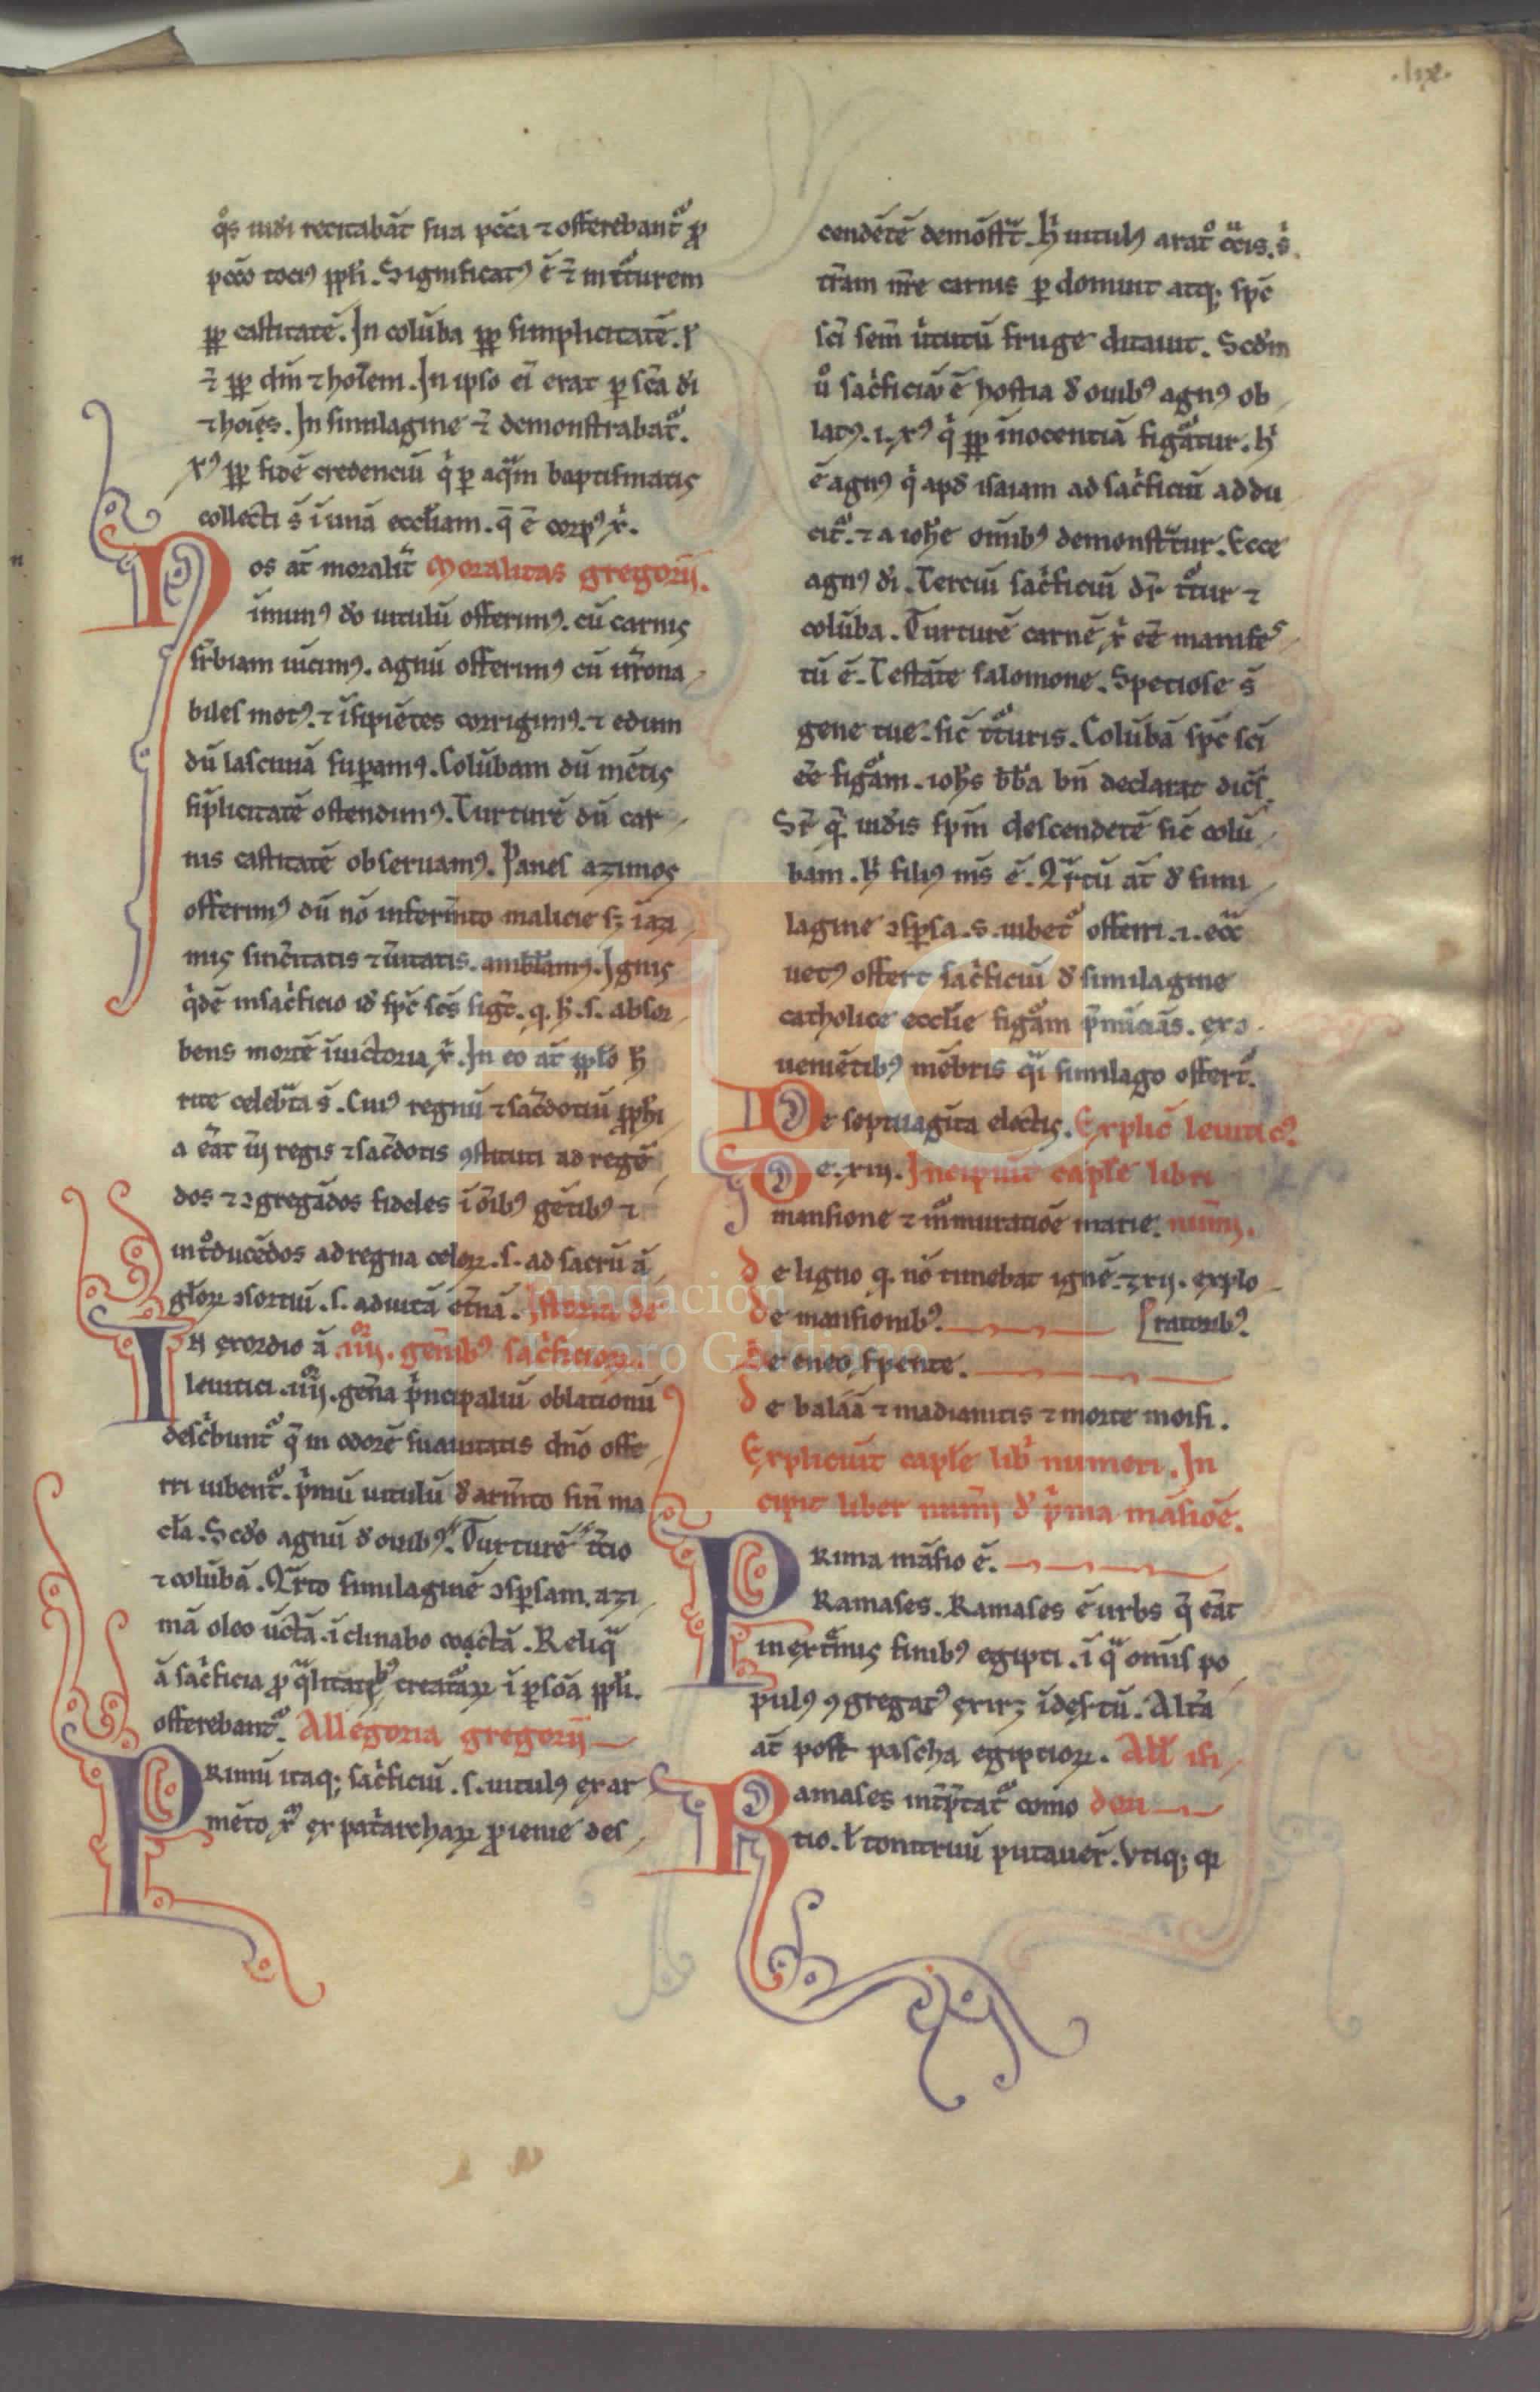 .lix.
q̊s iudi recitabāt sua pcc̄a ⁊ offerebant᷑ ꝓ
pcc̄o toci⁹ ppłi. Significat⁹ ē ⁊̄ in t̉turem
ꝓp castitatē. In colūba ꝓp simplicitatē. ſ
⁊̄ ꝓp dm̄ ⁊ hoīem. In ipso ei̅ erat ꝑscā di
⁊ hoīs. In similagine ⁊̄ demonstrabat᷑.
xꝰ ꝓp fidē credenciū q̇ ꝑ aquā baptismatis
collecti s̄ ī unā ecclīam. q̄ ē corpꝰ xi̇.
Nos at̄ moralit̄ Moralitas gregorij.
īmunꝰ dō uitulū offerimꝰ. cū carnis
suꝑbiam uīcimꝰ. agnū offerimꝰ cū irrōna
biles motꝰ. ⁊ īsipiētes corrigimꝰ. ⁊ edum
dū lasciuiā suꝑamꝰ. Colūbam dū mētis
simplicitatē ostendimꝰ. Turturē dū car
nis castitatē obseruamꝰ. Panes azimos
offerimꝰ dū nō in fermto malicie sꝫ ī azi
mis sinc̄itatis ⁊ ūitatis. amblamꝰ. Ignis
q̇dē in sac̄ficio id̄ spc̄ scs̄ figt̄. q. h̄. s. absor
bens mortē ī uictoria xi̇. In eo at̄ pplō h̄
rite celebrata s̄. Cuiꝰ regnū ⁊ sac̄dotiū ꝓph̄i
a eāt̄ in regis ⁊ sac̄dotis ꝯstituti ad regē
dos ⁊ ꝯgregādos fideles ī oībꝰ gētibꝰ ⁊
int̊ducēdos ad regna celoꝝ. s. ad sacrū ā
gloꝝ ꝯsortiū. s. ad uitā et̄nā. Istoria de
In exordio ā .iiij. gen̄ibꝰ sac̄ficioꝝ.
leuitici .iiij. gen̄a p̄ncipaliū oblationū
desc̄bunt᷑ q̄ in odorē suauitatis dn̄o offe
rri iubent᷑. p̄mū uitulū d̄ arm̄to sin̄ ma
cl̄a. Scd̄o agnū d̄ ouibꝰ. Turturē t̄cio
⁊ colūbā. Qrto similaginē ꝯspsam. azi
mā oleo ūctā. ī clinabo coactā. Reliq̄
ā sac̄ficia ꝓ q̄litatebꝰ creaturaꝝ ī ꝑsōa ppłi.
offerebant᷑. Allegoria gregorij
Primū itaqꝫ sac̄ficiū. s. uitulꝰ ex ar
mēto xꝰ ex pat̄archaꝝ ꝓienie des
cendētē demōst̄t. h̄ uitulꝰ arat᷑ c̄cis. s̄.
t̄ram nr̄e carnis ꝑdomuit atqꝫ spc̄
sci̅ sem̄ ūtutū fruge ditauit. Scd̄m
u̇ sac̄ficiū ē hostia d̄ ouibꝰ agnꝰ ob
latꝰ. i. xꝰ q̇ ꝓp īnocentiā figātur. h̄
ē agnꝰ q̇ apd̄ isaiam ad sac̄ficiū addu
cit᷑. ⁊ a ioh̄e oīnibꝰ demonst̄tur. Ecce
agnꝰ di̅. Terciū sac̄ficiū dr̄ t̊tur ⁊
colūba. Turturē carnē xi̇ eē manifes
tū ē. Testāte salomone. Speciose s̄
gene tue. sic̄ t̊turis. Colūbā spc̄ sci̅
eē figām. ioh̄s bb̄a bn̄ declarat dic̄s.
Sr̄ q̄ uid̄is spm̄ descendētē sic̄ colū
bam. h̄ filiꝰ ms̄ ē. Qrtū at̄ d̄ simi
lagine ꝯspsa. s. iubet᷑ offerri. i. ecc̄a
uetꝰ offert sac̄ficiū d̄ similagine
catholice ecclīe figām p̄miciās. ex ꝯ
ueniētibꝰ mēbris q̄i similago offert᷑.
De septuagīta electis. Explic̄ leuiticꝰ.
De. xiij. Incipiūt caplē libri
mansione ⁊ in murmuratiōe marie. num̄ij.
de ligno q. nō timebat ignē. ⁊ xij. explo
de mansionibꝰ. ratoribꝰ.
De eneo serpente.
de balāā ⁊ madianitis ⁊ morte moisi.
Expliciūt caplē libi̇ numeri. In
cipit liber num̄ij d̄ p̄ma māsiōe.
Prima māsio ē.
Ramases. Ramases ē urbs q̄ eāt̄
in ext̄mis finibꝰ egipti. ī q̄ omīs po
pulꝰ ꝯgregatꝰ exirꝫ ī desertū. Alt̄a
at̄ post pascha egiptioꝝ. All̄ isi
Ramases int̄p̄tat᷑ comō dori
tio. ł tonitruū putauer̄. Vtiqꝫ qꝛ